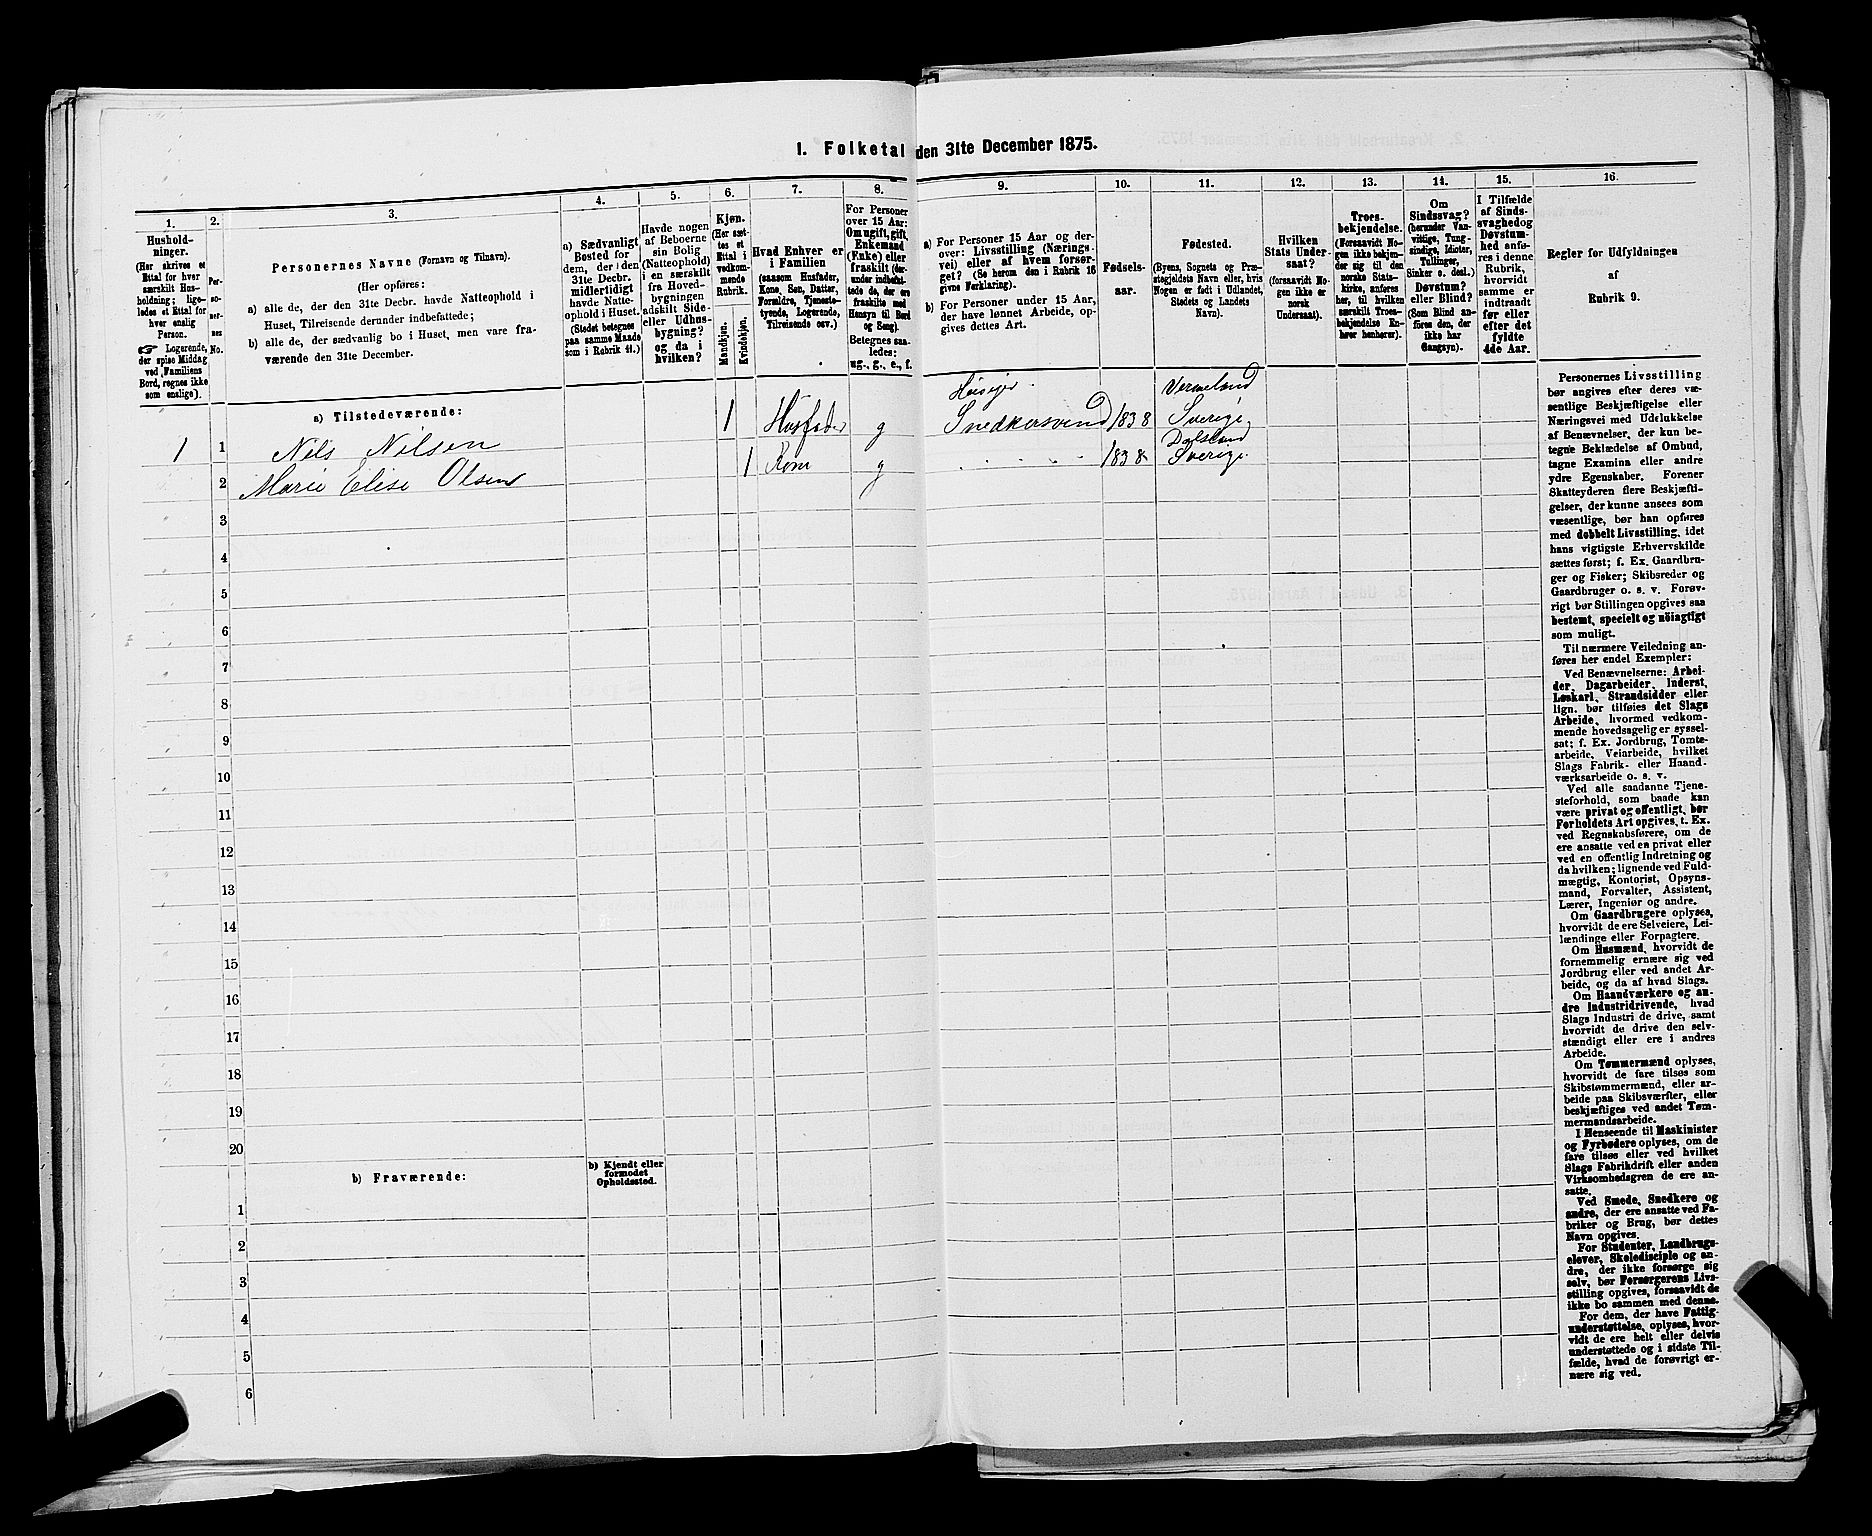 I. Folketal den 31te December 1875.
1.
2.
3.
4.
5.
6.
7.
8.
9.
10.
11.
12.
13.
14.
15.
16.
Hushold-
ninger.
(Her skrives et
Ettal for hver
særskilt Hus-
holdning; lige-
ledes et Ettal for
hver enslig
Person.
☞ Logerende,
der spise Middag
ved Familiens
Bord, regnes ikke
som enslige).
Per-
so-
ner-
nes
No.
Personernes Navne (Fornavn og Tilnavn).
(Her opføres:
a) alle de, der den 31te Decbr. havde Natteophold i
Huset, Tilreisende derunder indbefattede;
b) alle de, der sædvanlig bo i Huset, men vare fra-
værende den 31te December.
a) Sædvanligt
Bosted for
dem, der i den
31te Decbr.
midlertidigt
havde Natte-
ophold i Huset.
(Stedet betegnes
paa samme Maade
som i Rubrik 11.)
Havde nogen
af Beboerne
sin Bolig
(Natteophold)
i en særskilt
fra Hoved-
bygningen
adskilt Side-
eller Udhus-
bygning?
og da i
hvilken?
Kjøn.
(Her sæt-
tes et
Ettal i
vedkom-
mende
Rubrik.
Mandkjøn.
Kvindekjøn.
Hvad Enhver er
i Familien
(saasom Husfader,
Kone, Søn, Datter,
Forældre, Tjeneste-
tyende, Logerende,
Tilreisende osv.)
For Personer
over 15 Aar:
Om ugift, gift,
Enkemand
(Enke) eller
fraskilt (der-
under indbefat-
tede de, der ere
fraskilte med
Hensyn til Bord
og Seng).
Betegnes saa-
ledes:
ug., g., e., f.
a) For Personer 15 Aar og der-
over: Livsstilling (Nærings-
vei) eller af hvem forsør-
get? (Se herom den i Rubrik 16
givne Forklaring).
b) For Personer under 15 Aar,
der have lønnet Arbeide, op-
gives dettes Art.
Fødsels-
aar.
Fødested.
(Byens, Sognets og Præ-
stegjeldets Navn eller, hvis
Nogen er født i Udlandet,
Stedets og Landets
Navn).
Hvilken
Stats Under-
saat?
(forsaavidt No-
gen ikke er
norsk
Undersaat).
Troes-
bekjendelse.
(Forsaavidt No-
gen ikke bekjen-
der sig til den
norske Stats-
kirke, anføres
her, til hvilken
særskilt Troes-
bekjendelse En-
hver henhører).
Om
Sindssvag?
(herunder Van-
vittige, Tung-
sindige, Idioter,
Tullinger,
Sinker o. desl.)
Døvstum?
eller Blind?
(Som Blind an-
føres den, der
ikke har
Gangsyn).
I Tilfælde
af Sinds-
svaghed og
Døvstum-
hed anfø-
res i denne
Rubrik,
hvorvidt
samme er
indtraadt
før eller
efter det
fyldte
4de Aar.
Regler for Udfyldningen
af
Rubrik 9.
a) Tilstedeværende:
1 1 Nils Nilsen 1 Husfader g Snedkersvend 1838 Vermeland Sverige
2 Marie Elise Olsen 1 Kone g 1838 Dalsland Sverige
3
4
5
6
7
8
9
10
11
12
13
14
15
16
17
18
19
20
b) Fraværende:
b) Kjendt eller
formodet
Opholdssted.
1
2
3
4
5
6
Personernes Livsstilling
bør angives efter deres væ-
sentlige Beskjæftigelse eller
Næringsvei med Udelukkelse
af Benævnelser, der kun be-
tegne Beklædelse af Ombud,
tagne Examina eller andre
ydre Egenskaber. Forener
Skatteyderen flere Beskjæfti-
gelser, der kunne ansees som
væsentlige, bør han opføres
med dobbelt Livsstilling, idet
hans vigtigste Erhvervskilde
sættes først; f. Ex. Gaardbru-
ger og Fisker; Skibsreder og
Gaardbruger o. s. v. Forøv-
rigt bør Stillingen opgives saa
bestemt, specielt og nöiagtigt
som muligt.
Til nærmere Veiledning an-
føres her endel Exempler:
Ved Benævnelserne: Arbei-
der, Dagarbeider, Inderst,
Løskarl, Strandsidder eller
lign. bør tilføies det Slags
Arbeide, hvormed vedkom-
mende hovedsagelig er syssel-
sat; f. Ex. Jordbrug, Tomte-
arbeide, Veiarbeide, hvilket
Slags Fabrik- eller Haand-
værksarbeide o. s. v.
Ved alle saadanne Tjene-
steforhold, som baade kan
være privat og offentligt, bør
Forholdets Art opgives, t. Ex.
ved Regnskabsførere, om de
ere ansatte ved en privat eller
ved en offentlig Indretning og
da hvilken; lignende ved Fuld-
mægtig, Kontorist, Opsyns-
mand, Forvalter, Assistent,
Lærer, Ingeniør og andre.
Om Gaardbrugere oplyses,
hvorvidt de ere Selveiere, Lei-
lændinge eller Forpagtere.
Om Husmænd, hvorvidt de
fornemmelig ernære sig ved
Jordbrug eller ved andet Ar-
beide, og da af hvad Slags.
Om Haandværkere og an-
dre Industridrivende, hvad
Slags Industri de drive, samt
hvorvidt de drive den selv-
stændigt eller ere i andres
Arbeide.
Om Tømmermænd oplyses,
hvorvidt de fare tilsøs som
Skibstømmermænd, eller ar-
beide paa Skibsværfter, eller
beskjæftiges ved andet Tøm-
mermandsarbeide.
I Henseende til Maskinister
og Fyrbødere oplyses, om de
fare tilsøs eller ved hvilket
Slags Fabrikdrift eller anden
Virksomhedsgren de ere an-
satte.
Ved Smede, Snedkere og
andre, der ere ansatte ved Fa-
briker og Brug, bør dettes
Navn opgives.
For Studenter, Landbrugs-
elever, Skoledisciple og an-
dre, der ikke forsørge sig
selv, bør Forsørgerens Livs-
stilling opgives, forsaavidt de
ikke bo sammen med denne.
For dem, der have Fattig-
understøttelse, oplyses, hvor-
vidt de ere helt eller delvis
understøttede og i sidste Til-
fælde, hvad de forøvrigt er-
nære sig ved.